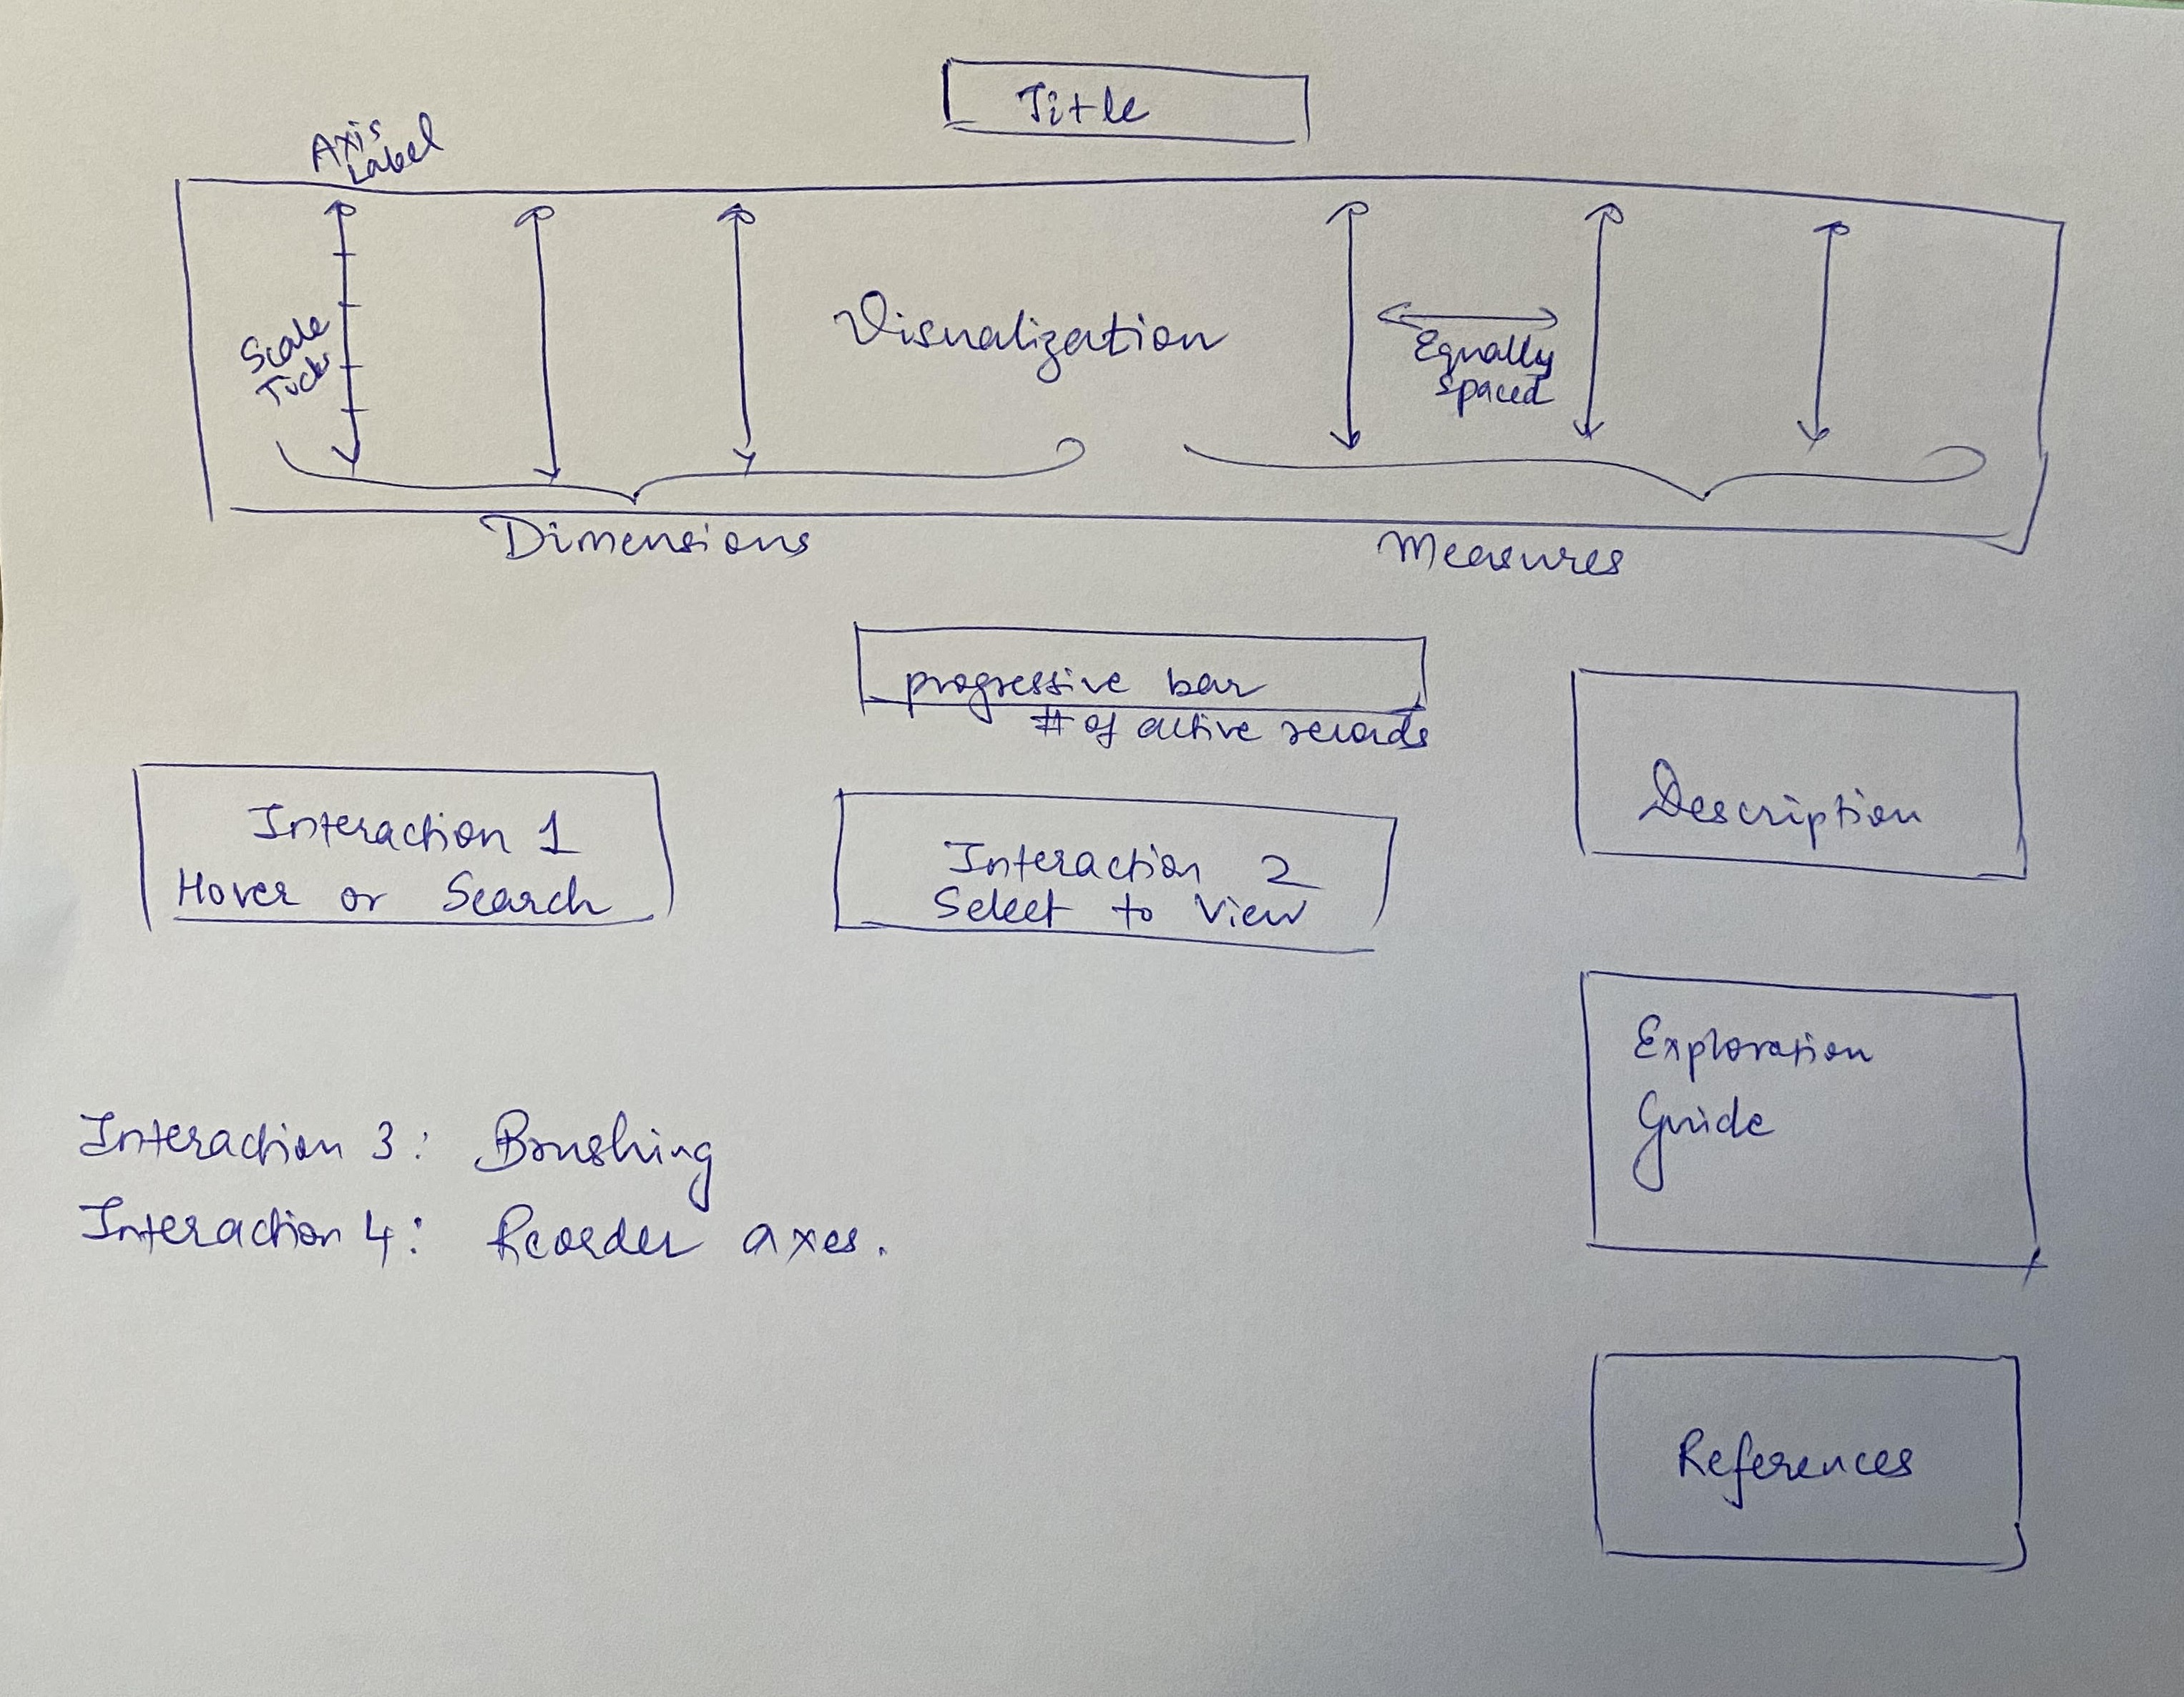 Title
Axis
Label
Scale
Ticks
Visualization
Equally
spaced
Dimensions
Measures
progressive bar
# of active records
Description
Interaction 1
Hover or Search
Interaction 2
Select to View
Exploration
Guide
Interaction 3: Brushing
Interaction 4: Reorder axes.
References